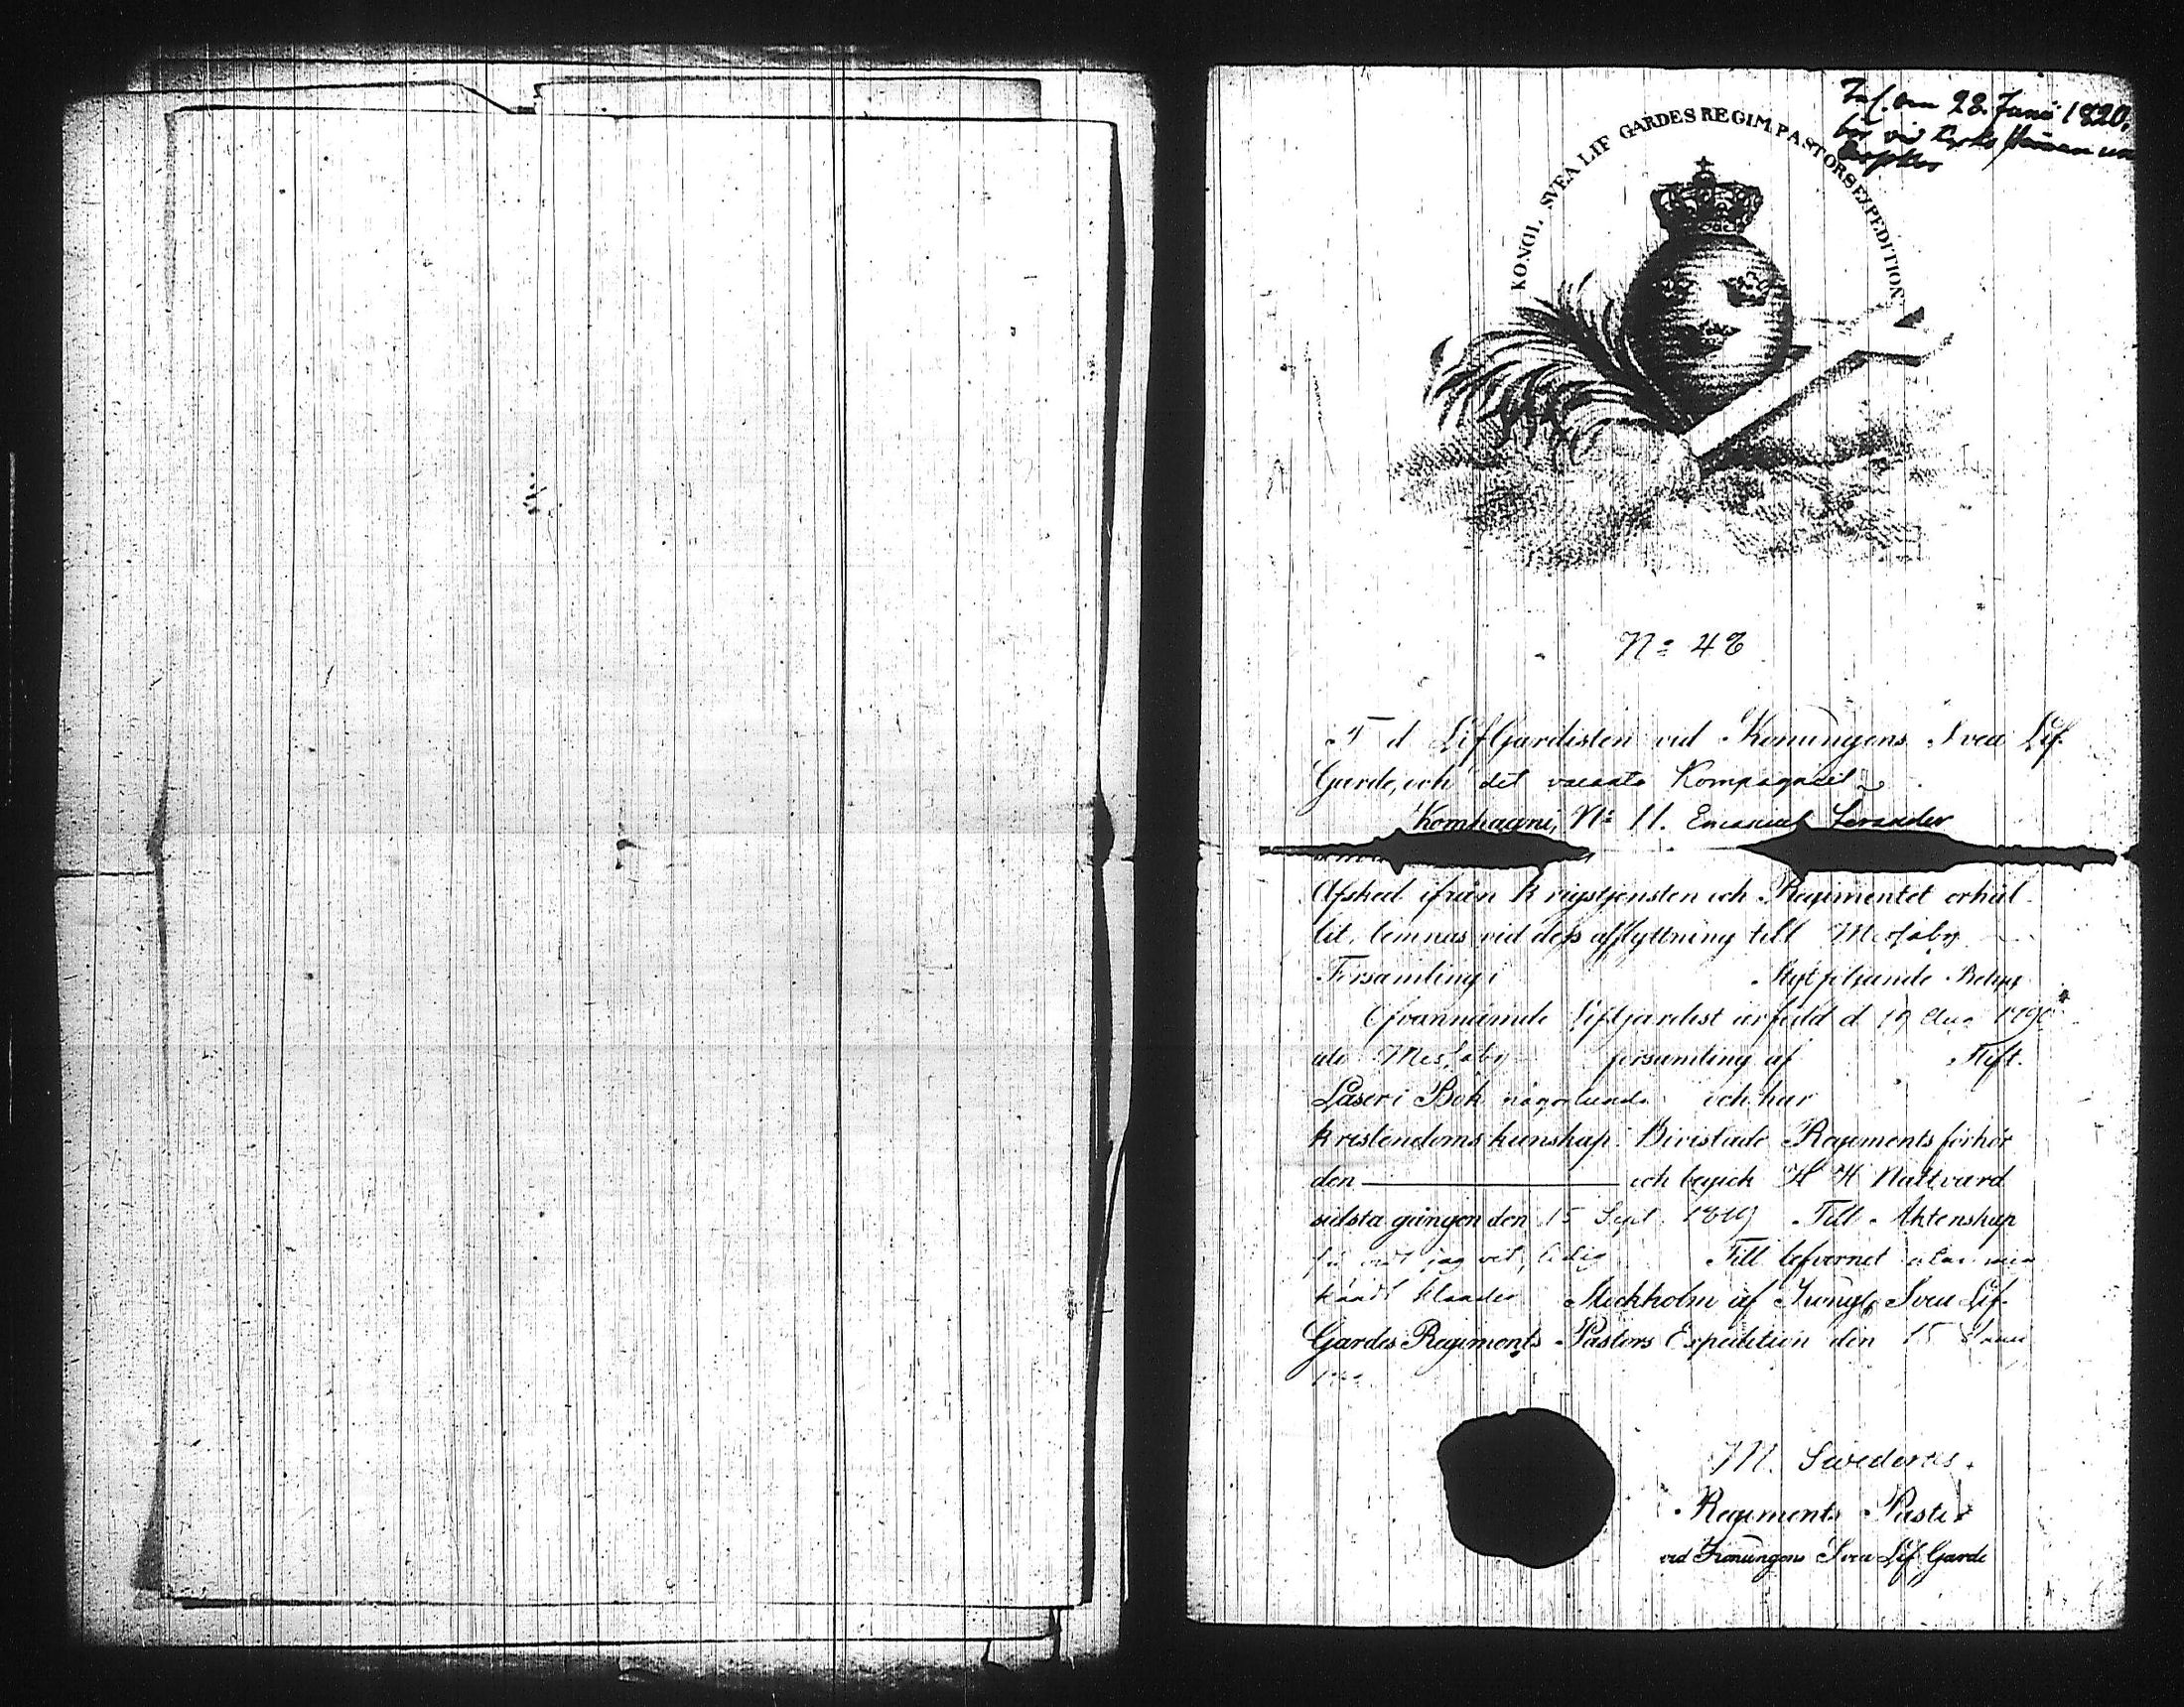 Inl. den 28. Junii 1820.
KONGL. SVEA LIF GARDES REGIM. PASTORS EXPEDITION
No 48
F d LifGardisten vid Konungens Svea Lif
Garde, och det vacanta Kompagniet
Kompagni, No 11. Emanuel
Afsked ifrån Krigstjensten och Regimentet erhål-
lit, lemnas vid dess afflyttning till
Församling i Stift följande Betyg
Ofvannämnde Lifgardist är född d 19 Aug 1790
uti församling af Stift.
Läser i Bok någorlunda och har
Kristendoms kunskap. Bivistade Regimentsförhör
den och begick H H Nattvard
sidsta gången den 15 Sept. 1819 Till Äktenskap
så vidt jag vet, ledig Till lefvernet utan min
kändt klander Stockholm af Kongl. Svea Lif-
Gardes Regiments Pastors Expedition den 15
M. Swederus.
Regiments Pastor
vid Konungens Svea Lif Garde